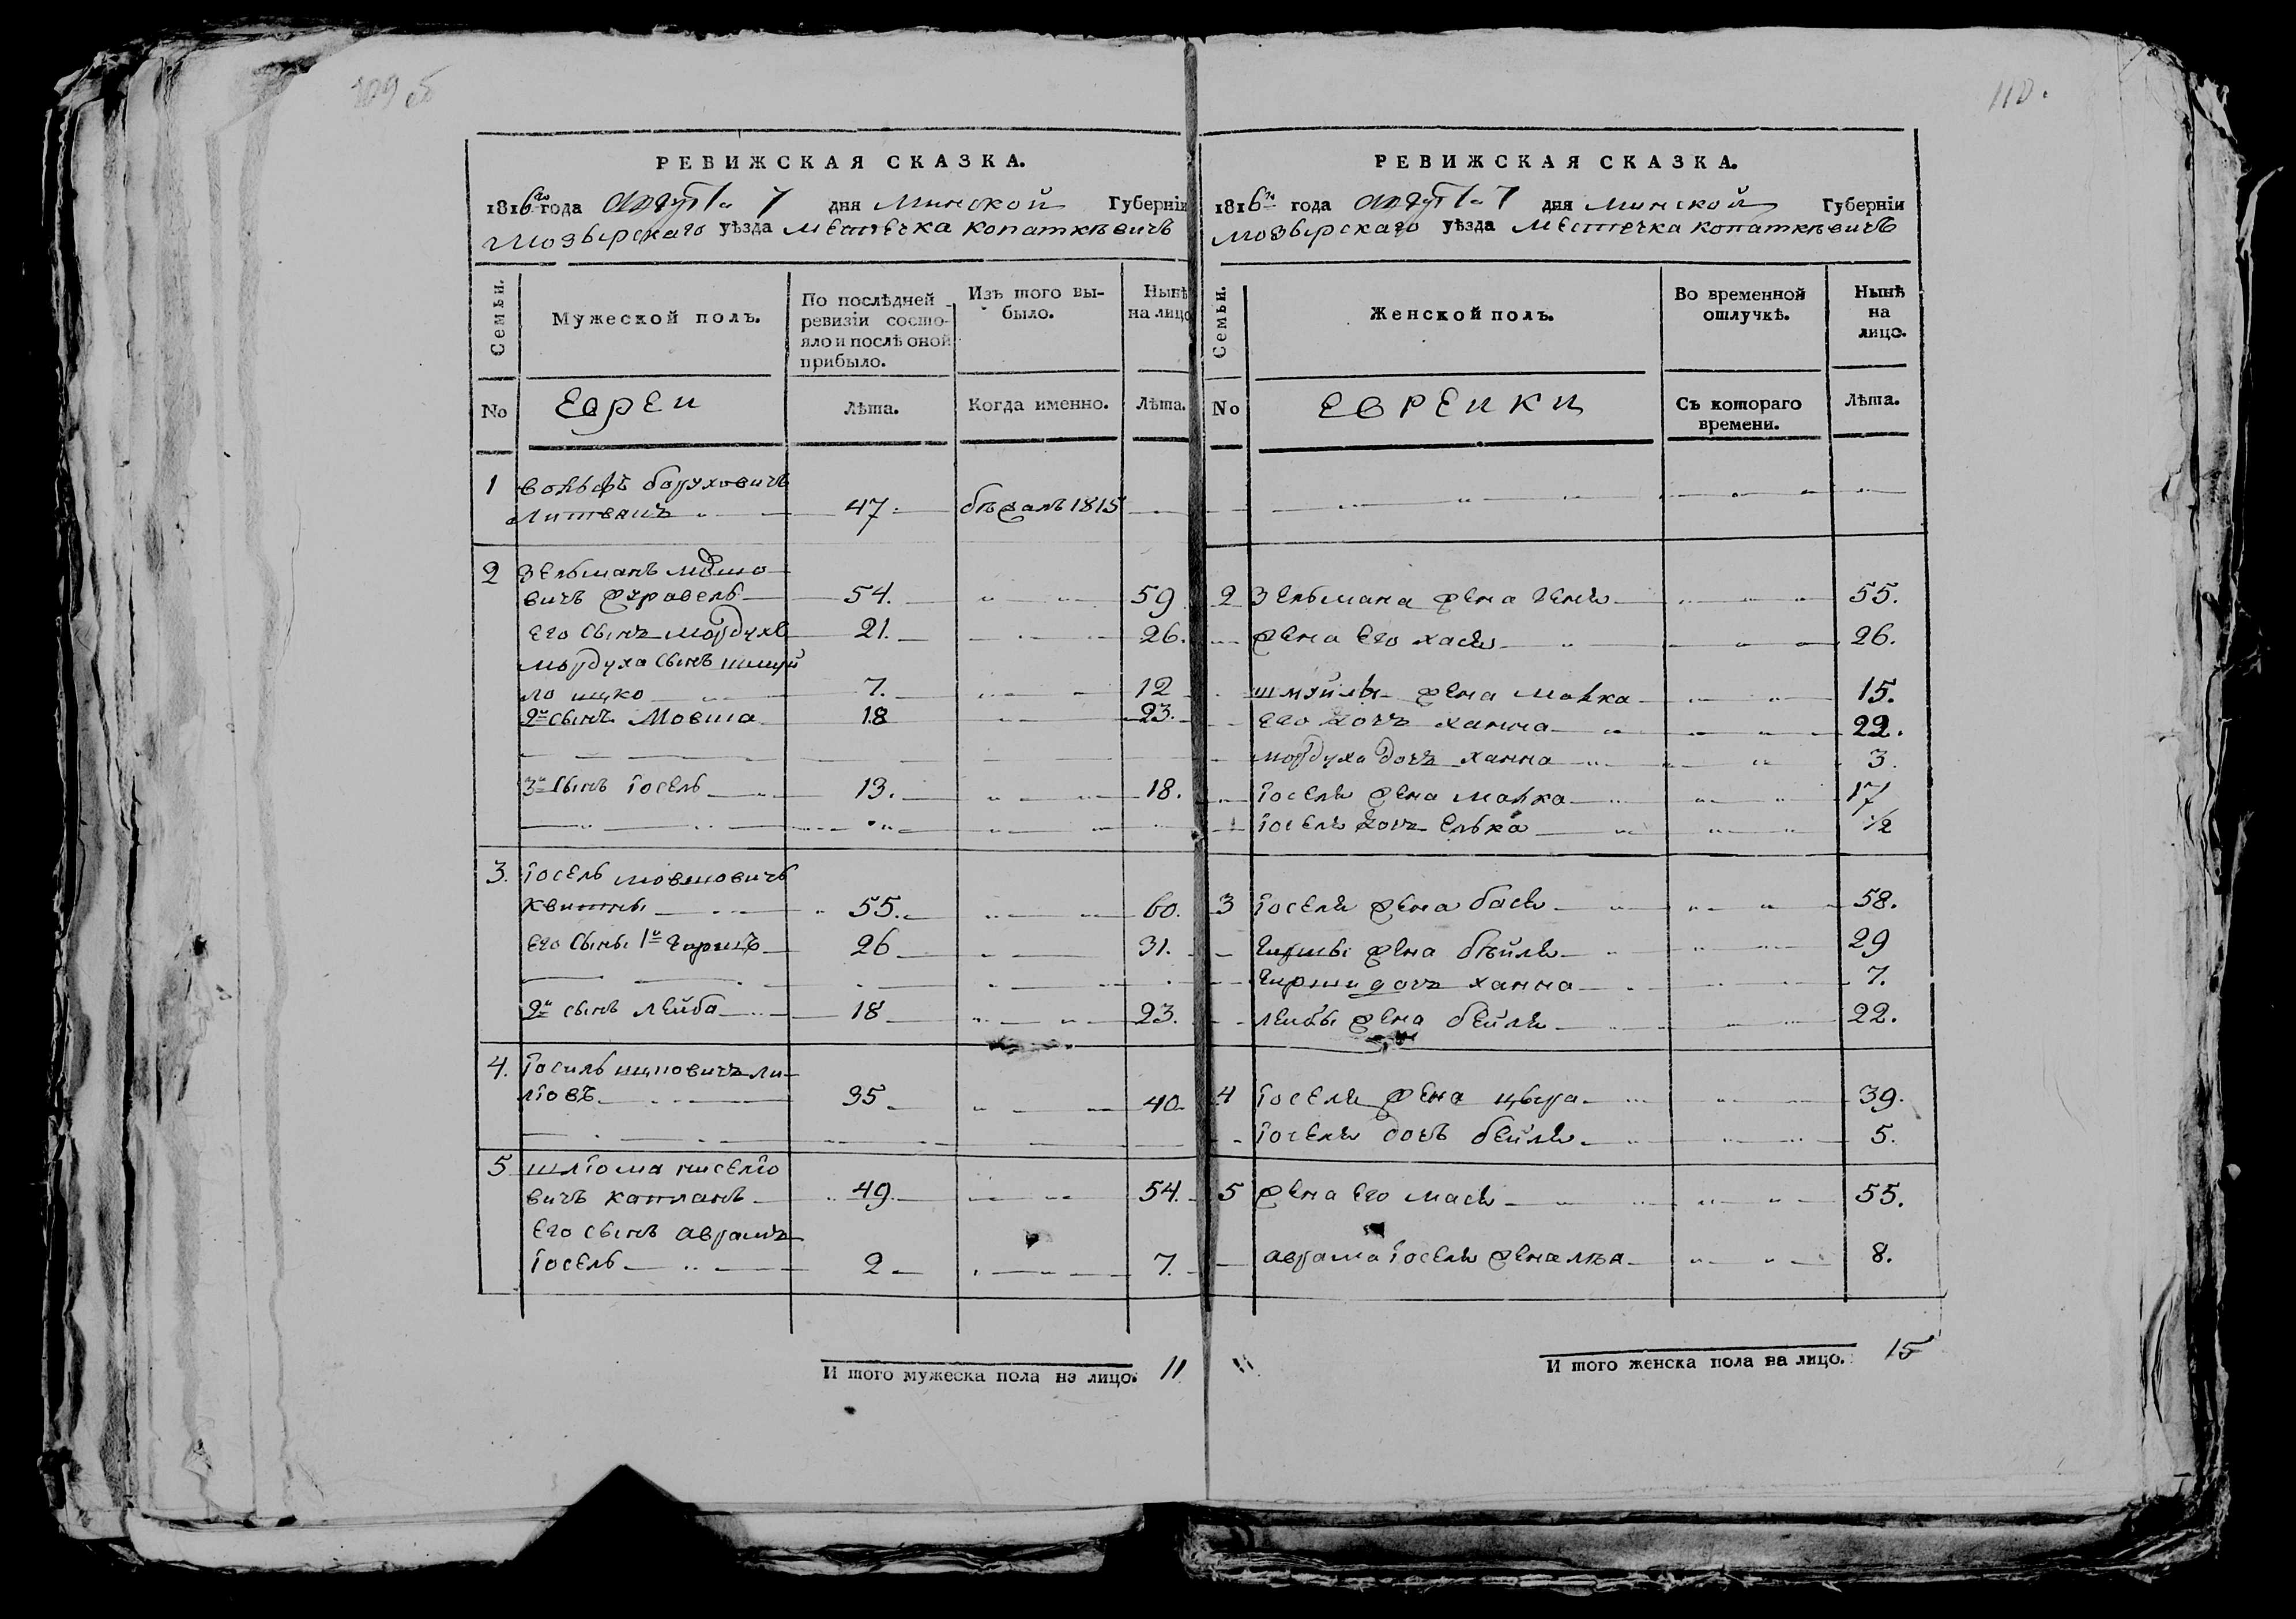 110.
РЕВИЖСКАЯ СКАЗКА.
1816го года августа 7 дня Минской Губерніи
Мозырскаго уѣзда Местечка Копаткѣвичъ
Семьи.
Мужеской полъ.
По послѣдней
ревизіи состо-
яло и послѣ оной
прибыло.
Изъ того вы-
было.
Нынѣ
на лицо
No
Евреи
Лѣта.
Когда именно.
Лѣта.
1 Вольфъ Боруховичъ
Литвинъ 47. бѣжалъ 1815
2 Зельманъ Мовшо
вичъ Журавель 54. 59
Его сынъ Мордухъ 21. 26.
Мордуха сынъ Шмуй
ло Ицко 7. 12
2й сынъ Мовша 18 23.
3й сынъ Іосель 13. 18.
3. Іосель Мовшовичъ
Квитны 55. 60.
Его сыны 1й Гиршъ 26 31.
2й сынъ Лейба 18 23.
4. Іосиль Ицковичъ Ли-
ліовъ 35 40
5 Шліома Ниселіо
вичъ Капланъ 49. 54.
Его сынъ Аврамъ
Іосель 2 7.
И того мужеска пола на лицо. 11
РЕВИЖСКАЯ СКАЗКА.
1816го года августа 7 дня Минской Губерніи
Мозырскаго уѣзда Местечка Копаткѣвичъ
Семьи.
Женской полъ.
Во временной
отлучкѣ.
Нынѣ
на
лицо.
No
Еврейки
Съ котораго
времени.
Лѣта.
2 Зельмана жена Геня 55.
жена Его Хася 26.
Шмуйлы жена Малка 15.
Его дочь Ханна 22.
Мордуха дочь Ханна 3.
Іоселя жена Малка 17
Іоселя дочь Елька 1/2
3 Іоселя жена Бася 58.
Гиршы жена Бѣйля 29
Гирши дочь Ханна 7.
Лейбы жена Бейля 22.
4 Іоселя жена Цыра 39.
Іоселя дочь Бейля 5.
5 жена Его Мася 55.
Аврама Іоселя жена Лѣя 8.
И того женска пола на лицо. 15